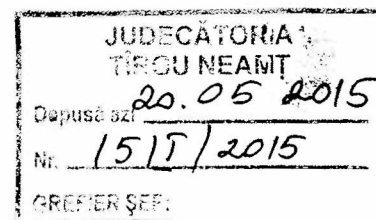 JUDECĂTORIA
TÎRGU NEAMŢ
Depusă azi 20.05 2015
Nr. 15/I/2015
GREFIER ŞEF: